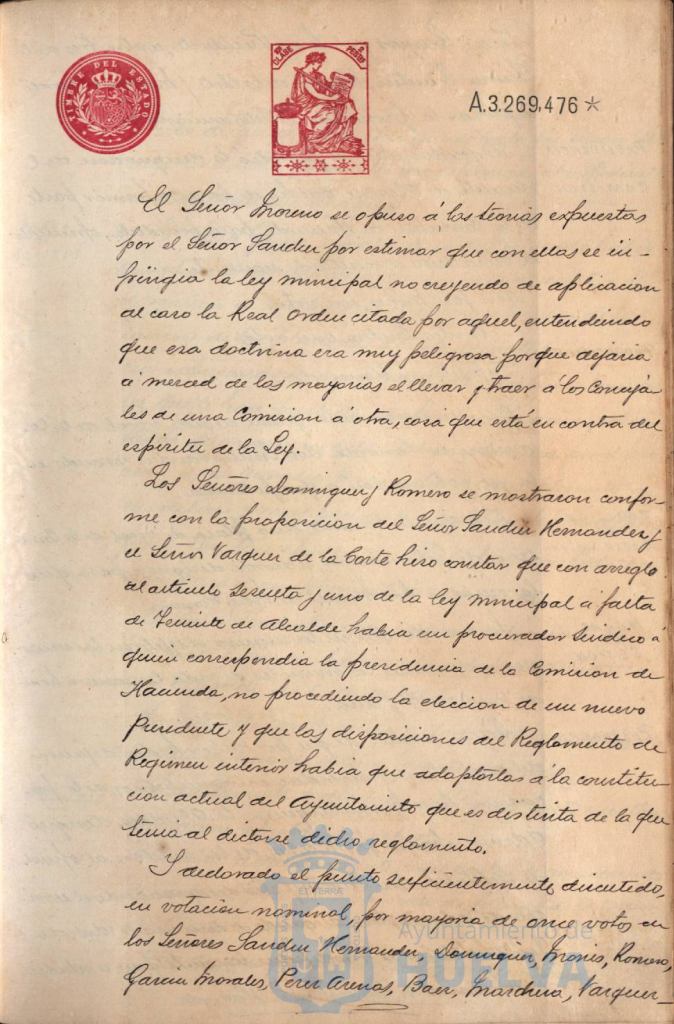 TIMBRE DEL ESTADO
CLASE
A.3.269.476 *
El Señor Moreno se opuso á las teorias expuestas
por el Señor Sanchez por estimar que con ellas se in-
fringia la ley municipal no creyendo de aplicacion
al caso la Real orden citada por aquel, entendiendo
que esa doctrina era muy peligrosa porque dejaria
á merced de las mayorias el llevar y traer á los Conceja-
les de una Comision á otra, cosa que está en contra del
espiritu de la Ley.
Los Señores Dominguez y Romero se mostraron confor-
me con la proposicion del Señor Sanchez Hernandez y
el Señor Vazquez de la Corte hizo constar que con arreglo
al articulo sesenta y uno de la ley municipal á falta
de Teniente de Alcalde habia un procurador Sindico á
quien correspondia la presidencia de la Comision de
Hacienda, no procediendo la eleccion de un nuevo
Presidente y que las disposiciones del Reglamento de
Regimen interior habia que adaptarlas á la constitu-
cion actual del Ayuntamiento que es distinta de la que
tenia al dictarse dicho reglamento.
Y declarado el punto suficientemente discutido,
en votacion nominal, por mayoria de once votos en
los Señores Sanchez Hernandez, Dominguez, Monis, Romero,
Garcia Morales, Perez Arenas, Baez, Marchena, Vazquez
Ayuntamiento de
HUELVA